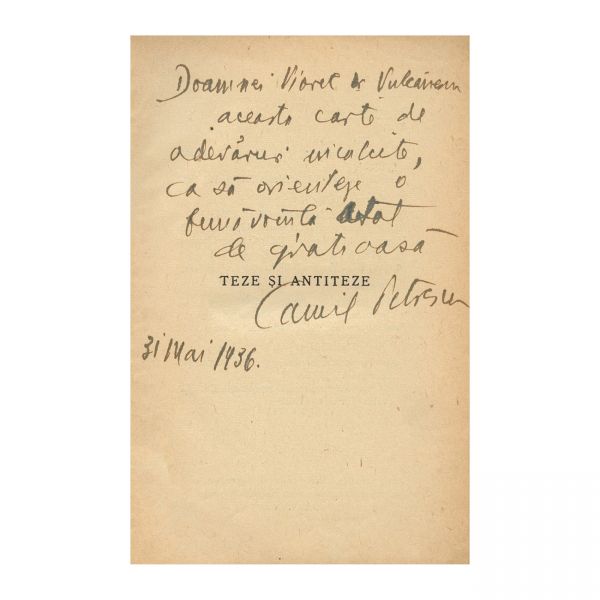 Doamnei Viorel Vulcănescu
această carte de
adevăruri
ca să orienteze o
bunăvoință atât
de grațioasă
TEZE ȘI ANTITEZE
Camil Petrescu
31 Mai 1936.